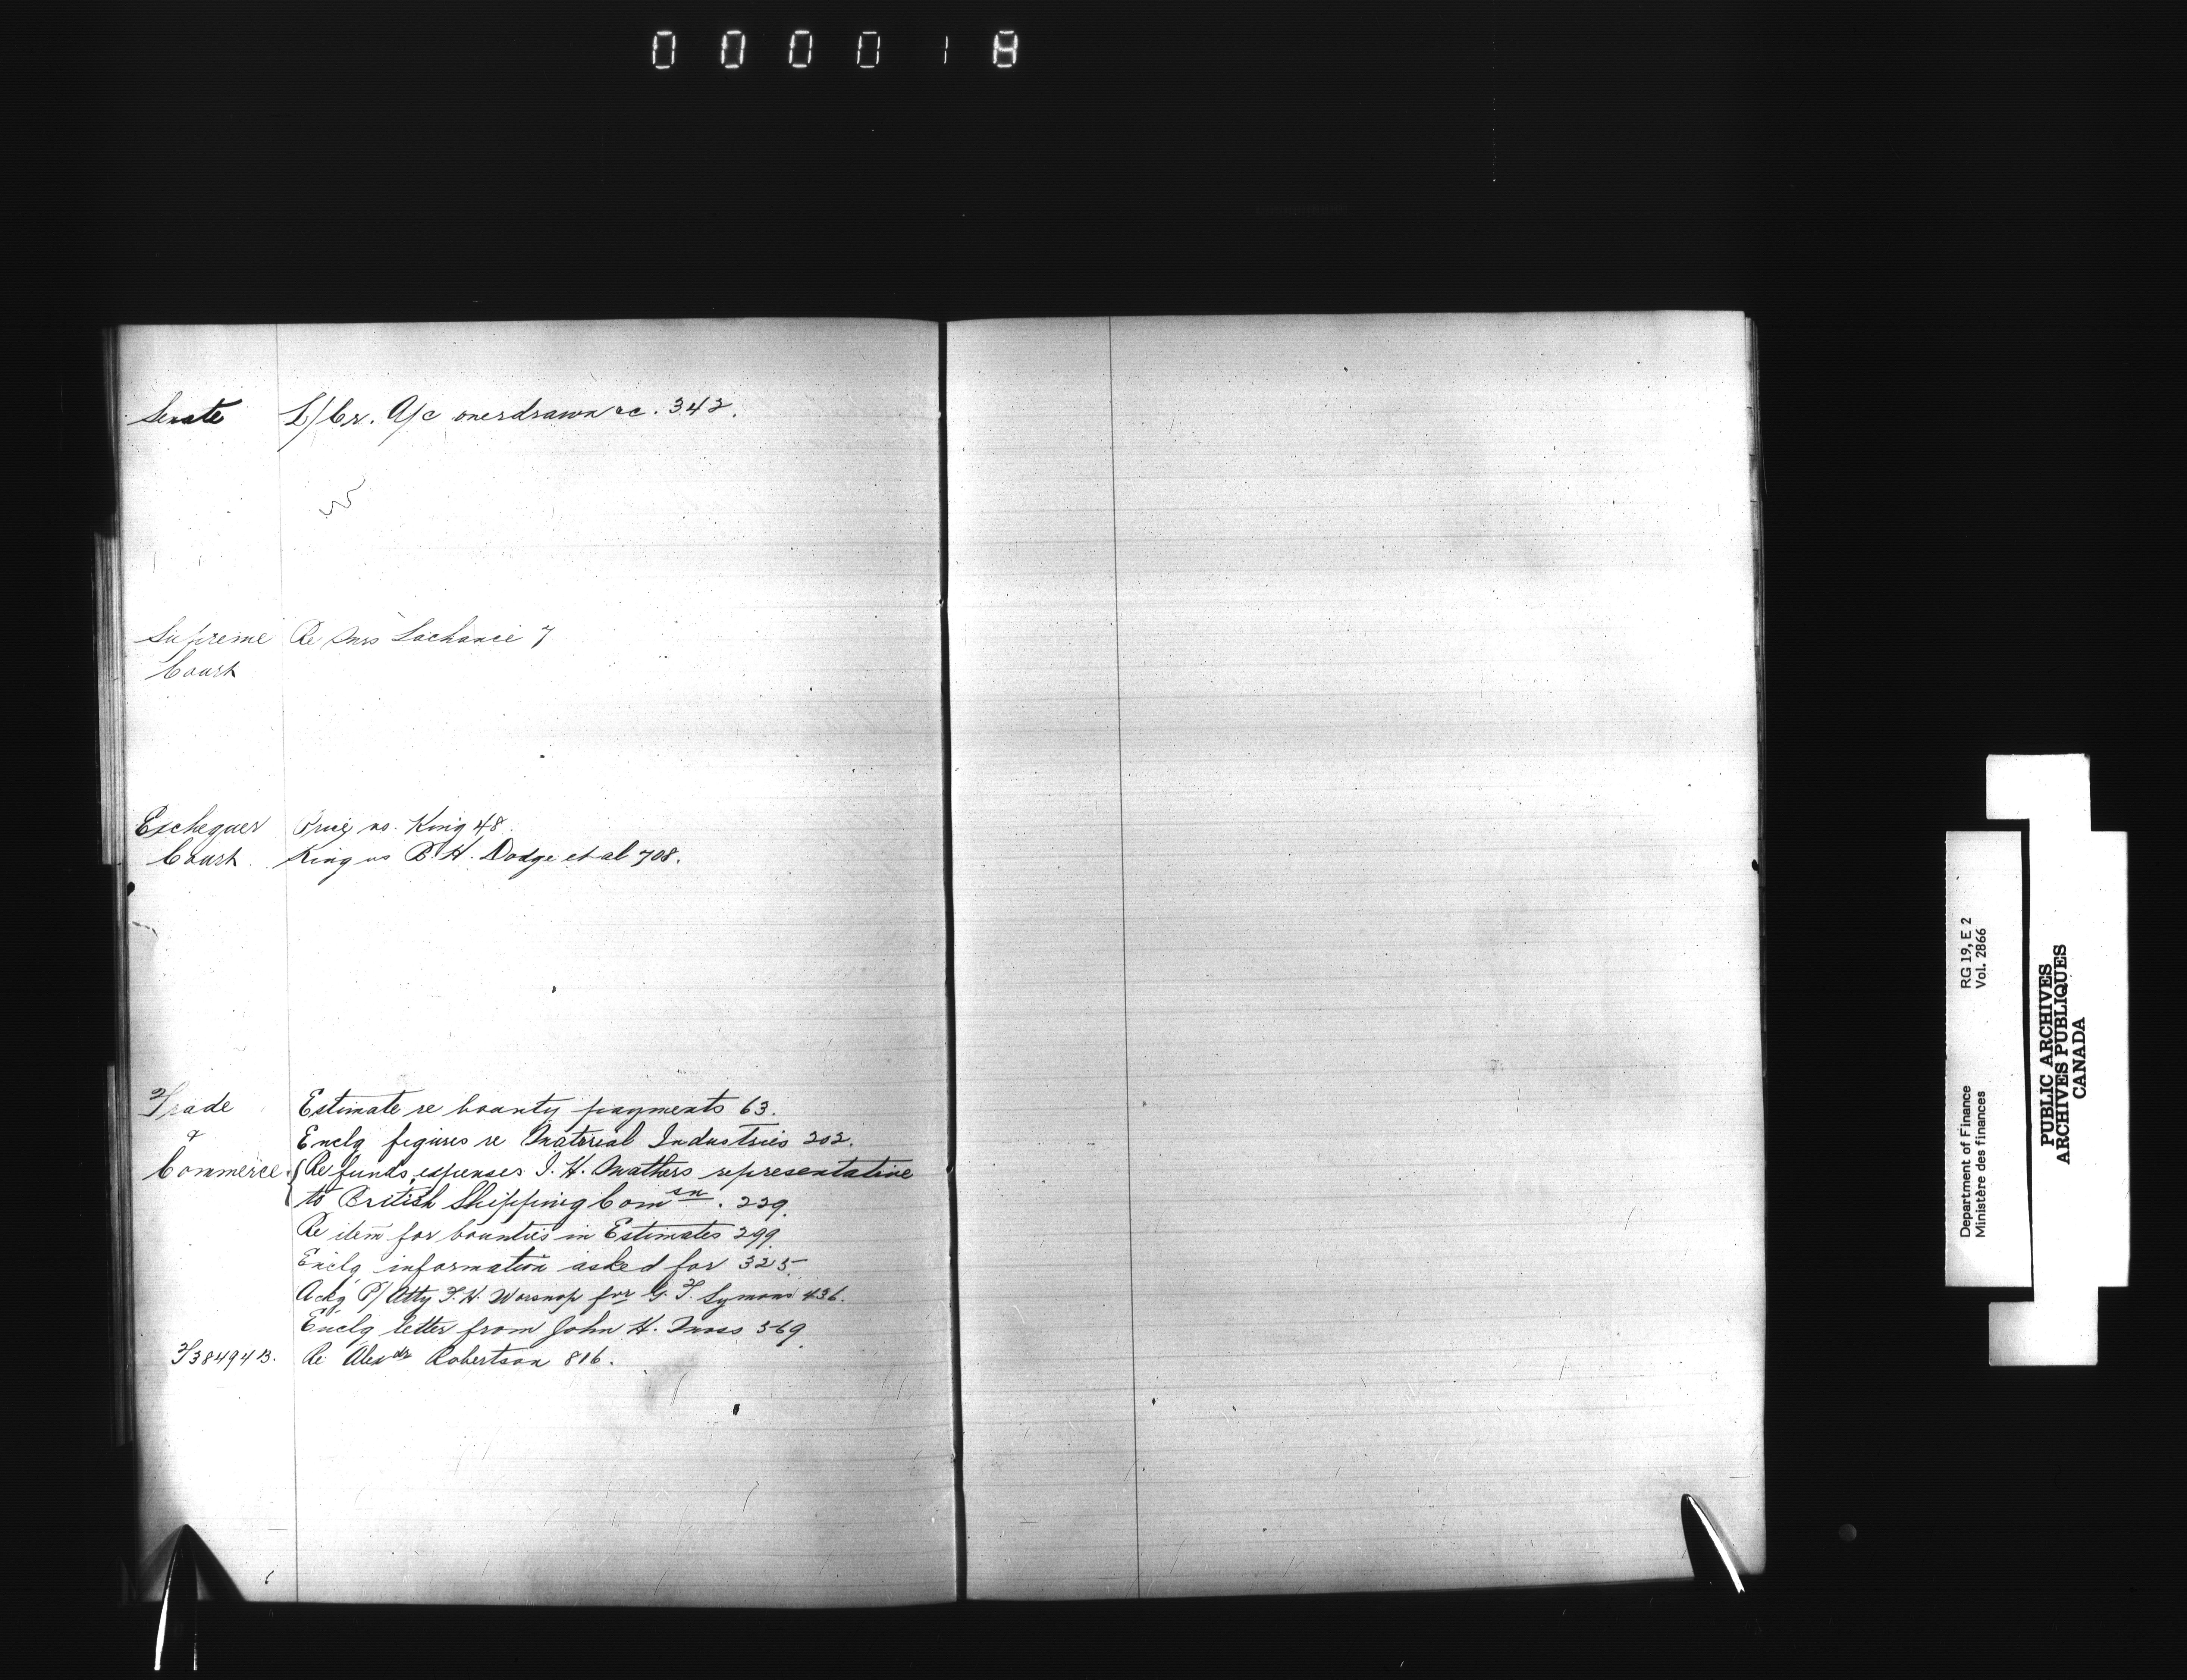 000018
Senate L/Cr. A/c overdrawn &c. 342.
Supreme Re Mrs Lachance 7
Court
Exchequer Price vs. King 48.
Court King vs B. H. Dodge et al 708.
Trade Estimate re bounty payments 63.
& Enclg figures re Material Industries 202.
Commerce. Re funds, expenses I. H. Mathers representative
to British Shipping Comsn. 229.
Re item for bounties in Estimates 299
Enclg information asked for 325.
Ackg P/Atty T. H. Worsnop for G. T. Symons 436.
Enclg letter from John H. 569.
T38494B. Re Alexdr Robertson 816.
Department of Finance RG 19, E 2
Ministère des finances Vol. 2866
PUBLIC ARCHIVES
ARCHIVES PUBLIQUES
CANADA